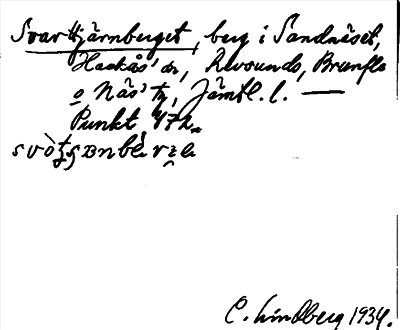 Svarttjärnberget, berg i Sandnäset,
Hackås' sn, Revsunds, Brunflo
o Näs' tg, Jämtl. l. —
Punkt 472
C. Lindberg 1934.